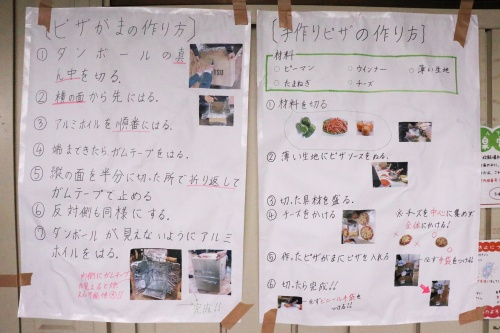 〔ピザがまの作り方〕
① ダンボールの真
ん中を切る.
② 横の面から先にはる.
③ アルミホイルを順番にはる.
④ 端まできたらガムテープをはる.
⑤ 縦の面を半分に切った所で折り返して
ガムテープで止める
⑥ 反対側も同様にする.
⑦ ダンボールが見えないようにアルミ
ホイルをはる.
→完成!!
〔手作りピザの作り方〕
材料
○ピーマン ○ウインナー ○薄い生地
○たまねぎ ○チーズ
① 材料を切る
② 薄い生地にピザソースをぬる.
③ 切った具材を盛る.
④ チーズをかける
※チーズを中心に集めず
全体にかける!
⑤ 作ったピザがまにピザを入れる
必ず手袋をつける!!
⑥ 切ったら完成!!
必ずビニール手袋を
つける!!